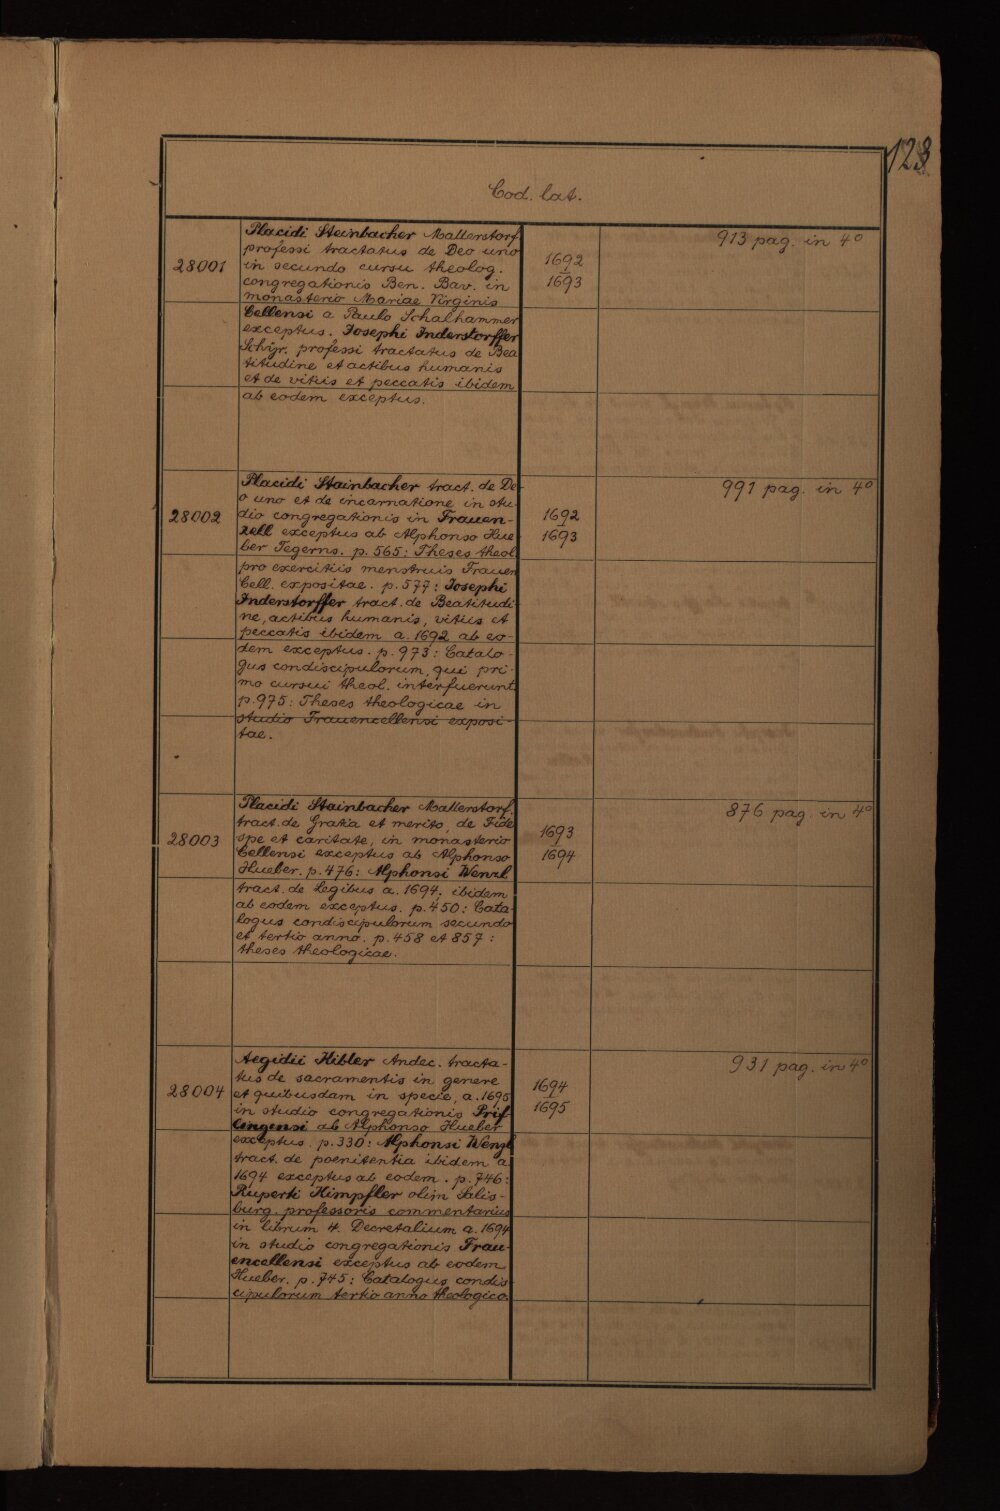 123
Cod. lat.
28001
Placidi Steinbacher Mallerstorf.
professi tractatus de Deo uno
in secundo cursu theolog.
congregationis Ben. Bav. in
monasterio Mariae Virginis
Cellensi a Paulo Schalhammer
exceptus. Josephi Inderstorffer
Schyr. professi tractatus de Bea
titudine et actibus humanis
et de vitiis et peccatis ibidem
ab eodem exceptus.
1692
1693
913 pag. in 4°
28002
Placidi Stainbacher tract. de De-
o uno et de incarnatione in stu-
dio congregationis in Frauen-
zell exceptus ab Alphonso Hue-
ber Tegerns. p. 565: Theses theol.
pro exercitiis menstruis Frauen
Cell. expositae. p. 577: Josephi
Inderstorffer tract. de Beatitudi-
ne, actibus humanis, vitiis et
peccatis ibidem a. 1692 ab eo-
dem exceptus. p. 973: Catalo-
gus condiscipulorum, qui pri-
mo cursui theol. interfuerunt.
p. 975: Theses theologicae in
studio Frauencellensi exposi-
tae.
1692
1693
991 pag. in 4°
28003
Placidi Stainbacher Mallerstorf.
tract. de Gratia et merito, de Fide
spe et caritate, in monasterio
Cellensi exceptus ab Alphonso
Hueber. p. 476: Alphonsi Wenzl
tract. de Legibus a. 1694, ibidem
ab eodem exceptus. p. 450: Cata-
logus condiscipulorum secundo
et tertio anno. p. 458 et 857:
theses theologicae.
1693
1694
876 pag. in 4°
28004
Aegidii Hibler Andec. tracta-
tus de sacramentis in genere
et quibusdam in specie, a. 1695
in studio congregationis Prif
lingensi ab Alphonso Hueber
exceptus. p. 330: Alphonsi Wenzl
tract. de poenitentia ibidem a.
1694 exceptus ab eodem. p. 746:
Ruperti Himpfler olim Salis-
burg. professoris commentarius
in librum 4. Decretalium a. 1694
in studio congregationis Frau-
encellensi exceptus ab eodem
Hueber. p. 745: Catalogus condis
cipulorum tertio anno theologico.
1694
1695
931 pag. in 4°